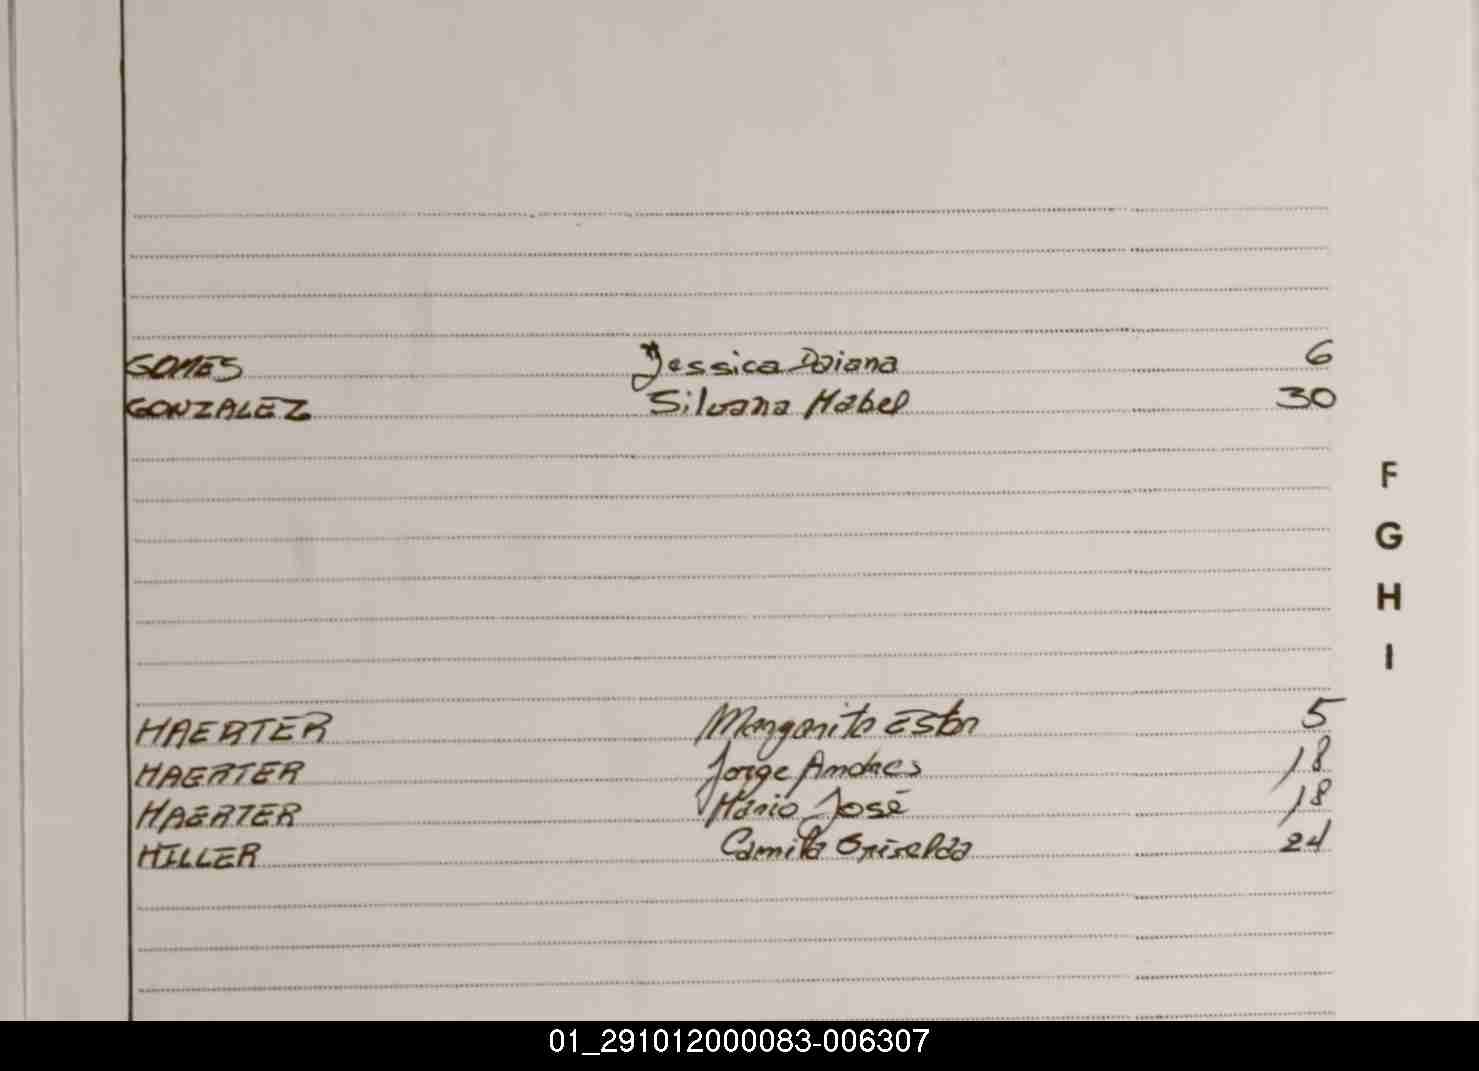 GOMES Jessica Daiana 6
GONZALEZ Silvana Mabel 30
F
G
H
I
HAERTER Margarita Ester 5
HAERTER Jorge Andres 18
HAERTER Mario José 18
HILLER Camila Griselda 24
01_291012000083-006307